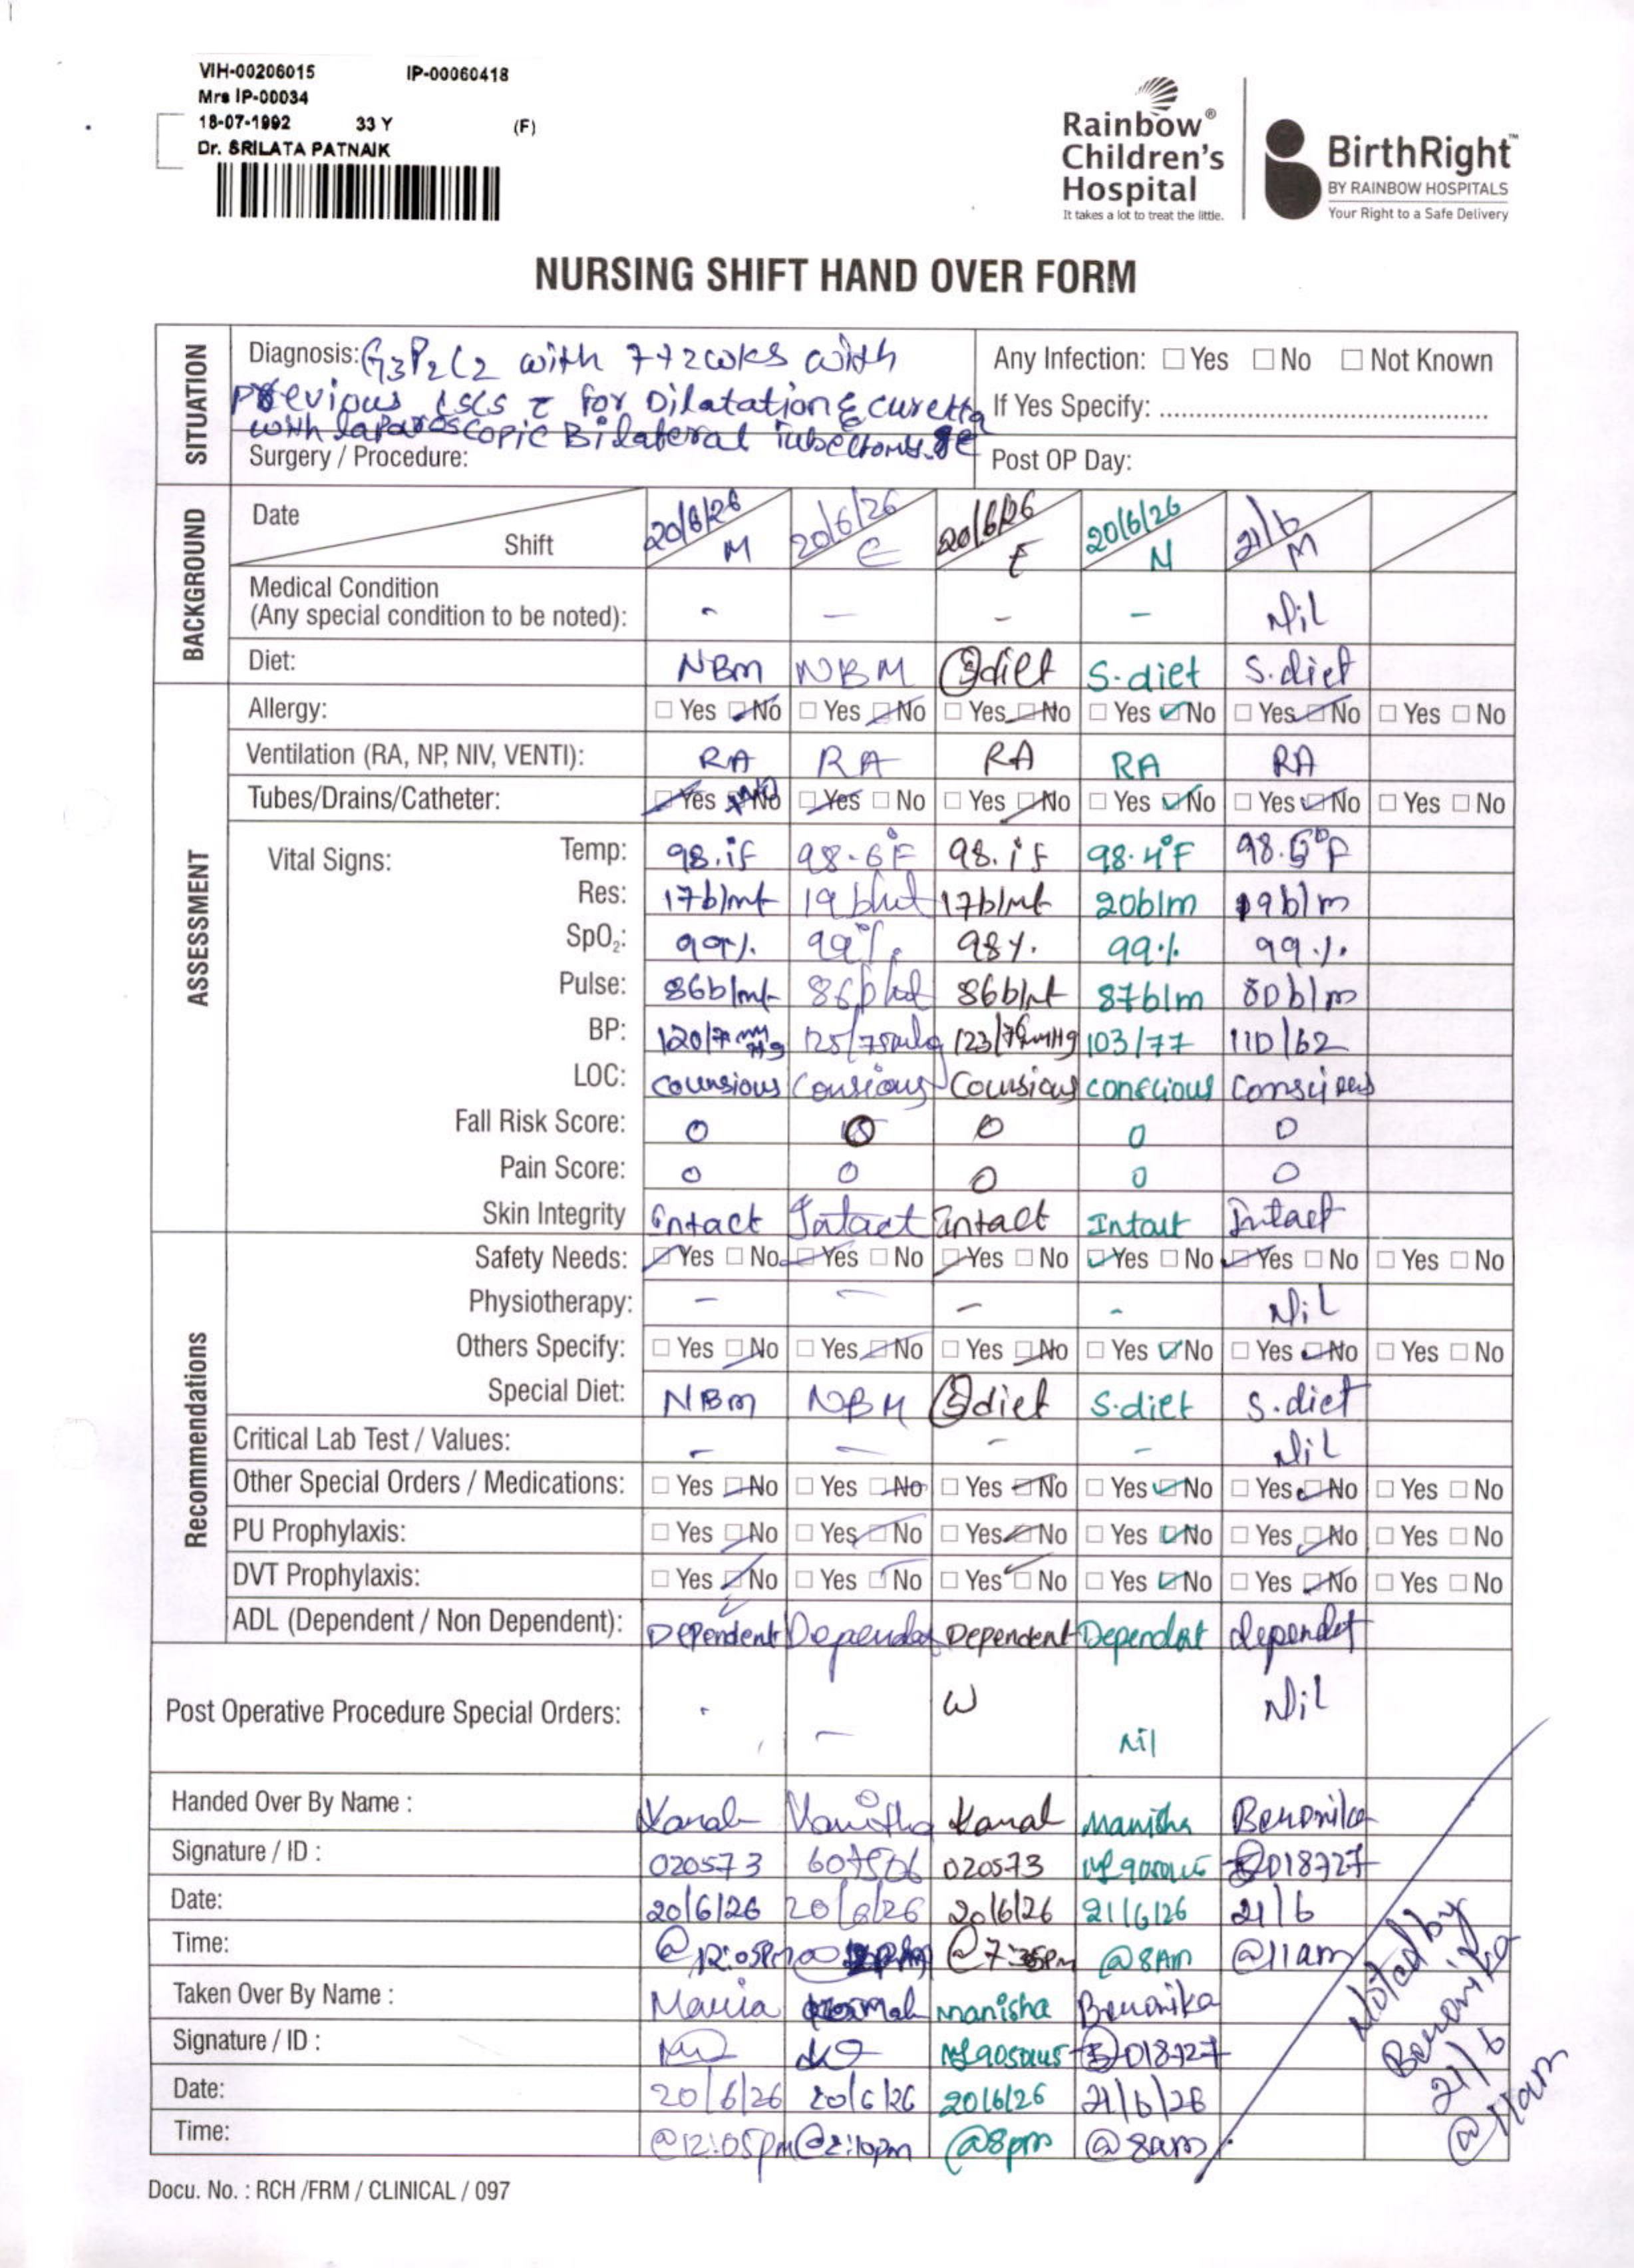 VIH-00206015 IP-00060418
Mrs IP-00034
18-07-1992 33 Y (F)
Dr. SRILATA PATNAIK
Rainbow®
Children's
Hospital
It takes a lot to treat the little.
BirthRight™
BY RAINBOW HOSPITALS
Your Right to a Safe Delivery
NURSING SHIFT HAND OVER FORM
SITUATION
Diagnosis: G3P2L2 with 7+2wks with
previous LSCS c for Dilatation & curetta
with laparoscopic Bilateral Tubectomy.
Any Infection: ☐ Yes ☐ No ☐ Not Known
If Yes Specify: ................................................
Surgery / Procedure: Post OP Day:
BACKGROUND
Date 20/6/26 20/6/26 20/6/26 20/6/26 21/6
Shift M E E N M
Medical Condition
(Any special condition to be noted): - - - - Nil
Diet: NBm NBM S diet S-diet S.diet
ASSESSMENT
Allergy: ☐ Yes ☑ No ☐ Yes ☑ No ☐ Yes ☑ No ☐ Yes ☑ No ☐ Yes ☑ No ☐ Yes ☐ No
Ventilation (RA, NP, NIV, VENTI): RA RA RA RA RA
Tubes/Drains/Catheter: ☑ Yes No ☑ Yes ☐ No ☐ Yes ☑ No ☐ Yes ☑ No ☐ Yes ☑ No ☐ Yes ☐ No
Vital Signs:
Temp: 98.1F 98.6°F 98.1F 98.4°F 98.6°F
Res: 17b/mt 19 b/mt 17b/mt 20b/m 19b/m
SpO₂: 99% 99% 98% 99% 99%
Pulse: 86b/mt 86b/mt 86b/mt 87b/m 80b/m
BP: 120/7 mmHg 125/75mmHg 123/7 mmHg 103/77 110/62
LOC: counsious Consious Counsious conscious Conscious
Fall Risk Score: 0 0 0 0
Pain Score: 0 0 0 0 0
Skin Integrity Intact Intact intact Intact Intact
Recommendations
Safety Needs: ☑ Yes ☐ No ☑ Yes ☐ No ☑ Yes ☐ No ☑ Yes ☐ No ☑ Yes ☐ No ☐ Yes ☐ No
Physiotherapy: - - - - Nil
Others Specify: ☐ Yes ☑ No ☐ Yes ☑ No ☐ Yes ☑ No ☐ Yes ☑ No ☐ Yes ☑ No ☐ Yes ☐ No
Special Diet: NBm NBM S diet S.diet S.diet
Critical Lab Test / Values: - - - - Nil
Other Special Orders / Medications: ☐ Yes ☑ No ☐ Yes ☑ No ☐ Yes ☑ No ☐ Yes ☑ No ☐ Yes ☑ No ☐ Yes ☐ No
PU Prophylaxis: ☐ Yes ☑ No ☐ Yes ☑ No ☐ Yes ☑ No ☐ Yes ☑ No ☐ Yes ☑ No ☐ Yes ☐ No
DVT Prophylaxis: ☐ Yes ☑ No ☐ Yes ☑ No ☐ Yes ☑ No ☐ Yes ☑ No ☐ Yes ☑ No ☐ Yes ☐ No
ADL (Dependent / Non Dependent): Dependent Dependent Dependent Dependent dependet
Post Operative Procedure Special Orders: - - Nil Nil
Handed Over By Name : Kamal Kamal Manisha Beronika
Signature / ID : 020573 020573 018727
Date: 20/6/26 20/6/26 20/6/26 21/6/26 21/6
Time: @12:05pm @7:35pm @8Am @11am
Taken Over By Name : Maria manisha Beronika
Signature / ID : 018727
Date: 20/6/26 20/6/26 20/6/26 21/6/26
Time: @12:05pm @2:10pm @8pm @8am
Noted by
Beronika
21/6
@11am
Docu. No. : RCH /FRM / CLINICAL / 097